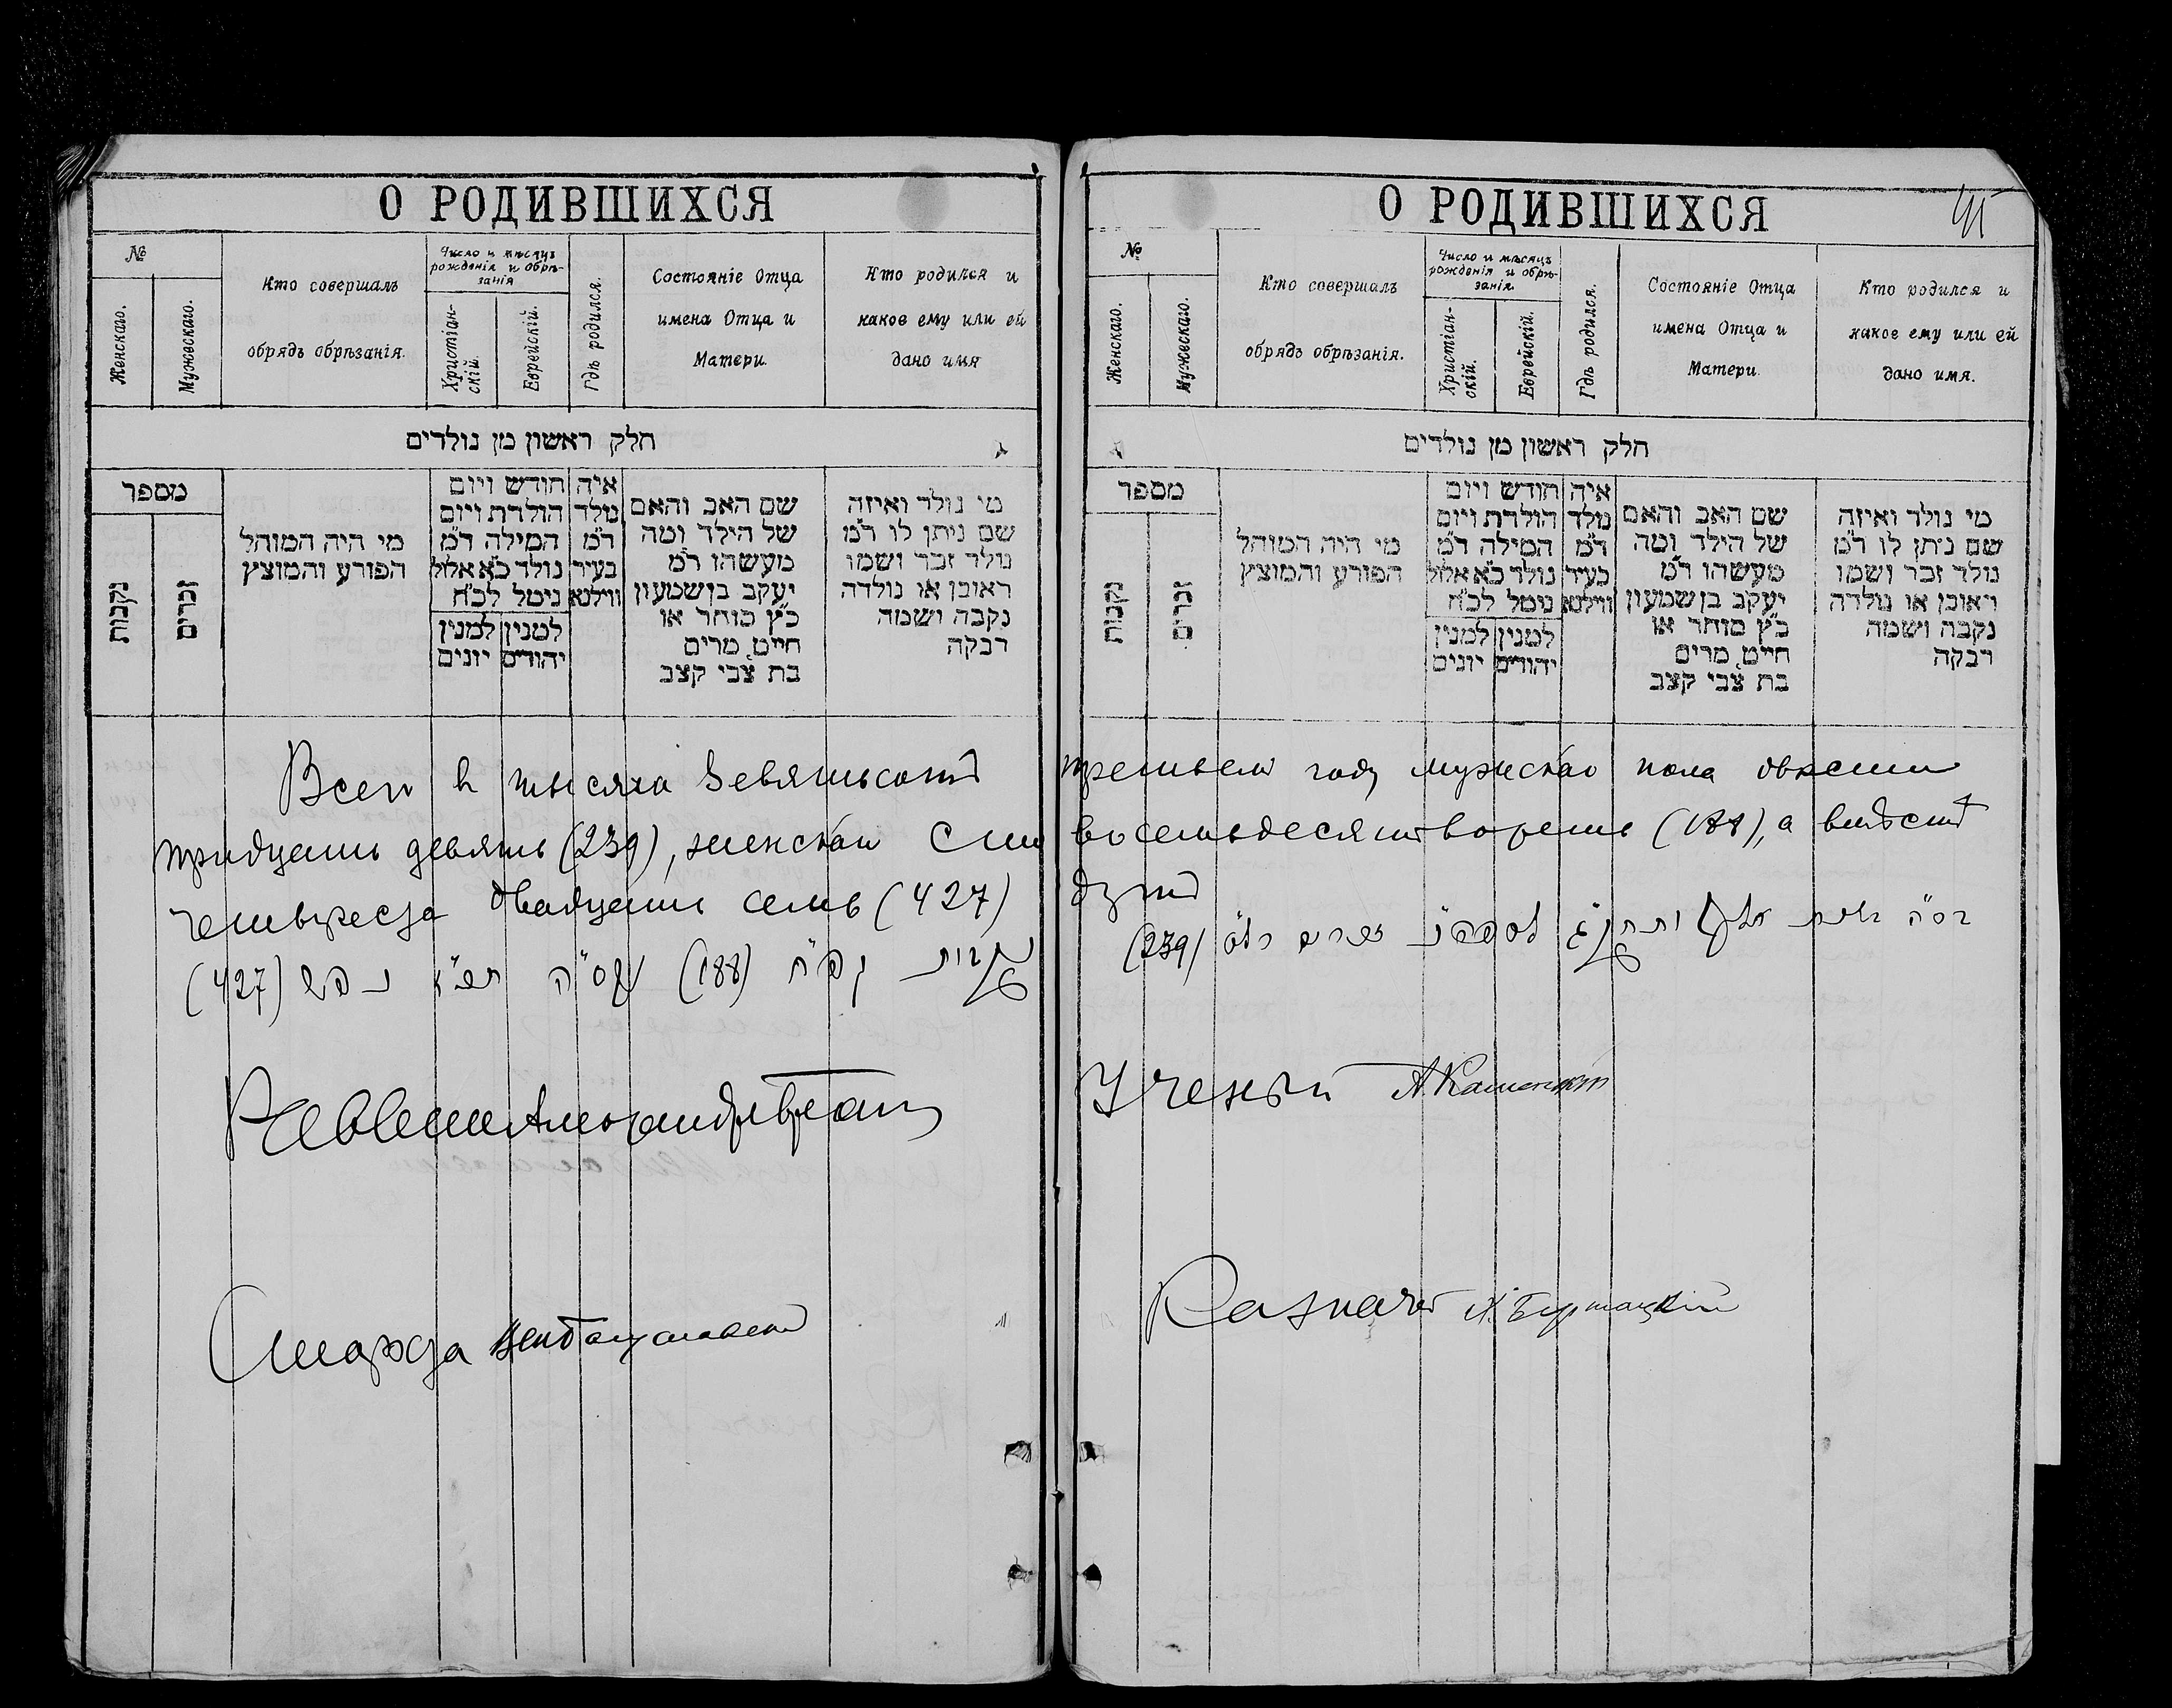 О РОДИВШИХСЯ
№
Женскаго.
Мужескаго.
Кто совершалъ
обрядъ обрѣзанія.
Число и мѣсяцъ
рожденія и обрѣ-
занія
Христіан-
скій.
Еврейскій.
Гдѣ родился.
Состояніе Отца
имена Отца и
Матери.
Кто родился и
какое ему или ей
дано имя
חלק ראשון מן נולדים
מספר
נקבות
זכרים
מי היה המוהל
הפורע והמוצץ
חודש ויום
הולדת ויום
המילה ד״מ
נולד כ״א אלול
ניטל לכ״ח
למנין יונים
למנין יהודים
איה
נולד
ד״מ
בעיר
ווילנא
שם האב והאם
של הילד ומה
מעשהו ד״מ
יעקב בן שמעון
כ״ץ סוחר או
חייט, מרים
בת צבי קצב
מי נולד ואיזה
שם ניתן לו ד״מ
נולד זכר ושמו
ראובן או נולדה
נקבה ושמה
רבקה
О РОДИВШИХСЯ
№
Женскаго.
Мужескаго.
Кто совершалъ
обрядъ обрѣзанія.
Число и мѣсяцъ
рожденія и обрѣ-
занія.
Христіан-
скій.
Еврейскій.
Гдѣ родился.
Состояніе Отца
имена Отца и
Матери.
Кто родился и
какое ему или ей
дано имя.
חלק ראשון מן נולדים
מספר
נקבות
זכרים
מי היה המוהל
הפורע והמוצץ
חודש ויום
הולדת ויום
המילה ד״מ
נולד כ״א אלול
ניטל לכ״ח
למנין יונים
למנין יהודים
איה
נולד
ד״מ
בעיר
ווילנא
שם האב והאם
של הילד ומה
מעשהו ד״מ
יעקב בן שמעון
כ״ץ סוחר או
חייט, מרים
בת צבי קצב
מי נולד ואיזה
שם ניתן לו ד״מ
נולד זכר ושמו
ראובן או נולדה
נקבה ושמה
רבקה
Всего въ тысяча девятьсотъ третьемъ году мужскаго пола двѣсти
тридцать девять (239), женскаго сто восемьдесятъ восемь (188), а вмѣстѣ
четыреста двадцать семь (427) душъ
(239)
נקבות קפ״ח (188) סה״ה תכ״ז נפש (427)
Раввинъ
Ученый А. Каменскій
Староста
Казначей